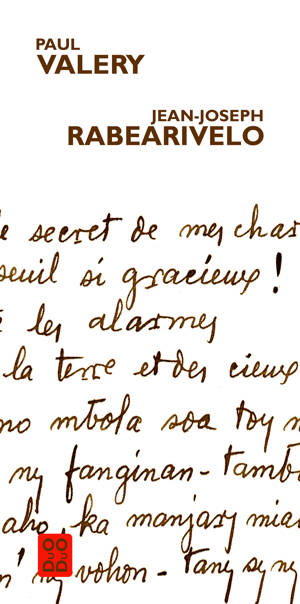 PAUL
VALERY
JEAN-JOSEPH
RABEARIVELO
e secret de mes char
seuil si gracieux !
les alarmes
la terre et des cieux
no mbola soa toy n
ny fanginan - tamb
aho, ka manjary mia
DUO
DUO
n' ny vohon - tany sy ny